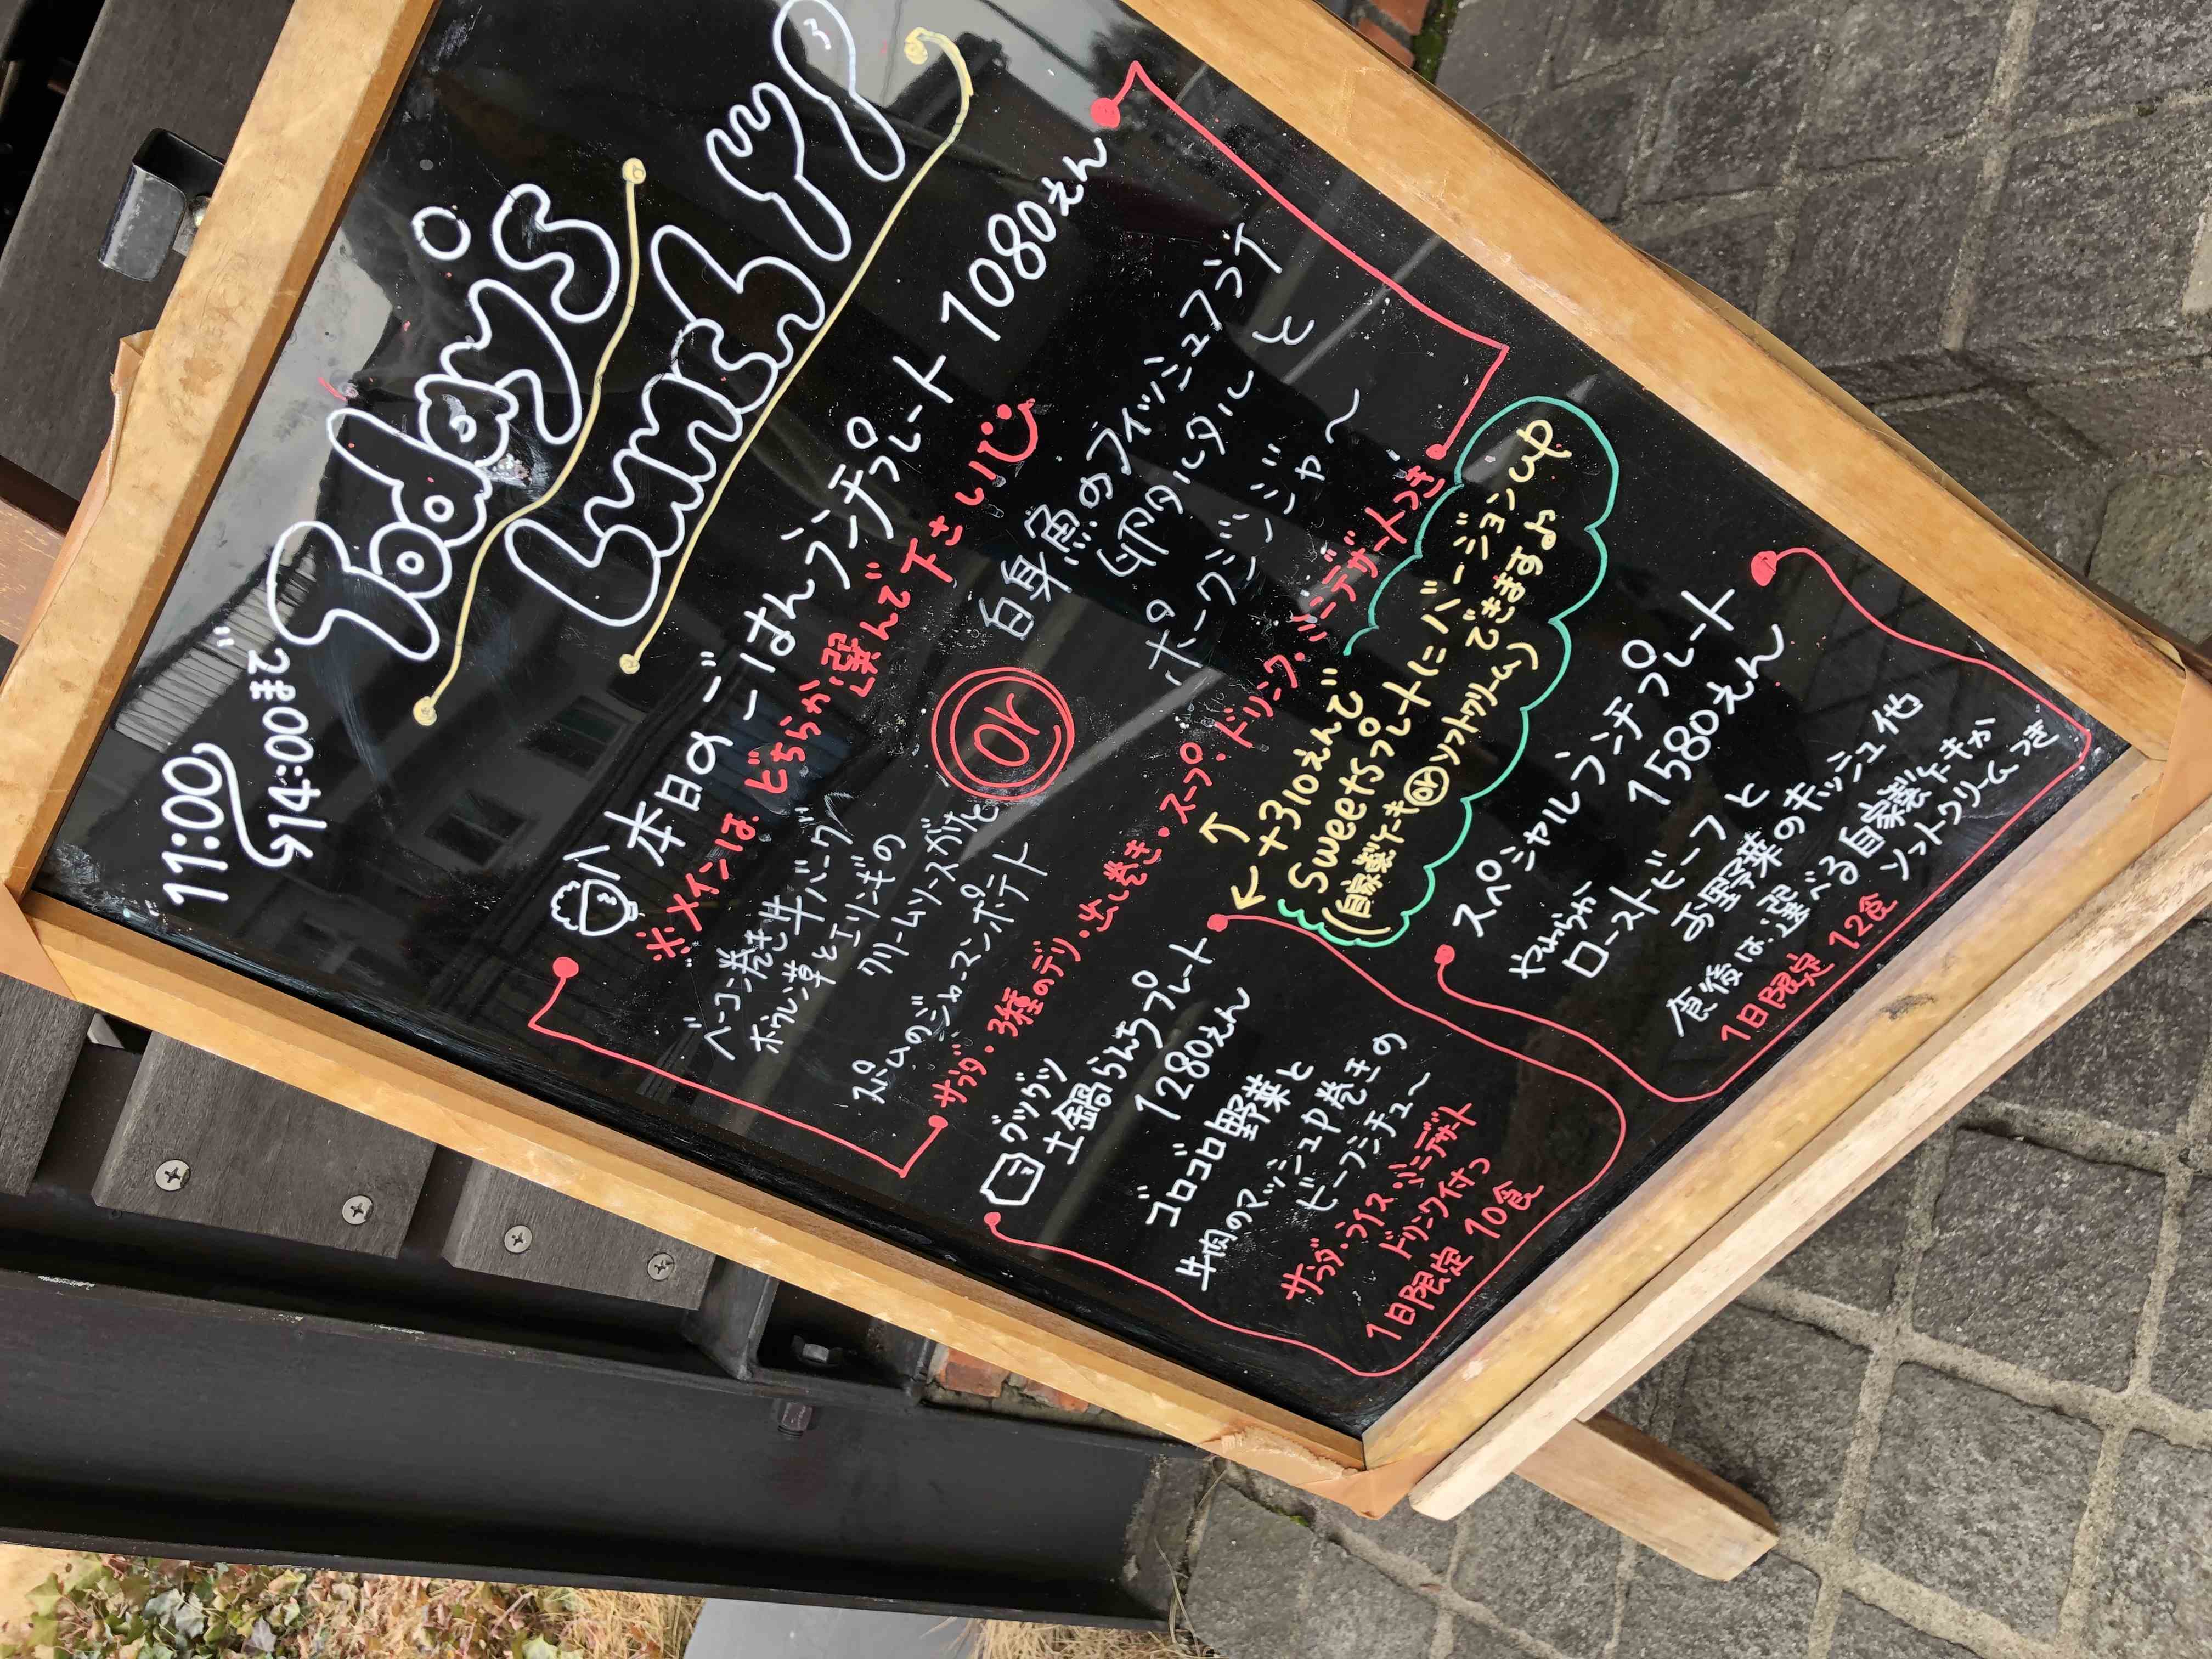 11:00
↪14:00まで
Today's
Lunch
本日のごはんランチプレート 1080えん
※メインは、どちらか選んで下さい
ベーコン巻き牛バーグ
ホウレン草とエリンギの
クリームソースがけと
ジャーマンポテト
or
白身魚のフィッシュフライ
タルタルと
ポークジンジャー
サラダ・3種のデリ・出し巻き・スープ・ドリンク・ミニデザートつき
+310えんで
Sweetsプレートにバージョンup
(自家製ケーキorソフトクリーム)できますよ
グツグツ
土鍋らんちプレート
1280えん
ゴロゴロ野菜と
牛肉のマッシュ巻きの
ビーフシチュ〜
サラダ・ライス・ミニデザート
ドリンク付っ
1日限定 10食
スペシャルランチプレート
1580えん
やわらか
ローストビーフと
お野菜のキッシュ他
食後は、選べる自家製ケーキか
ソフトクリームつき
1日限定 12食